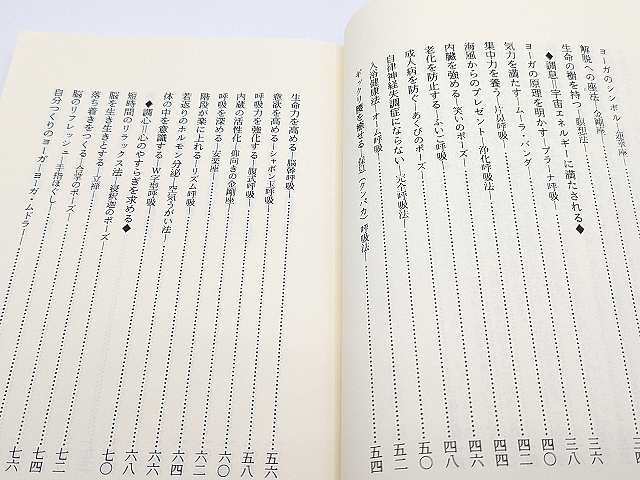 ヨーガのシンボル―蓮華座
解脱への座法―金剛座……三六
生命の樹を持つ―瞑想法……三八
◆調息＝宇宙エネルギーに満たされる◆
ヨーガの原理を明かす―プラーナ呼吸……四〇
気力を満たす―ムーラ・バンダ……四二
集中力を養う―片鼻呼吸……四四
海風からのプレゼント―浄化呼吸法……四六
内臓を強める―笑いのポーズ……四八
老化を防止する―ふいご呼吸……五〇
成人病を防ぐ―あくびのポーズ……五二
自律神経失調症にならない―完全呼吸法……五四
入浴健康法―オーム呼吸……
ギックリ腰を癒せる―保息（クンバカ）呼吸法……
生命力を高める―脳幹呼吸……五六
意欲を高める―シャボン玉呼吸……五八
呼吸力を強化する―腹式呼吸……六〇
内蔵の活性化―仰向きの金剛座……六二
呼吸を深める―安楽座……六四
階段が楽に上れる―リズム呼吸……六六
若返りのホルモン分泌―空気うがい法……六八
体の中を意識する―W字型呼吸……七〇
◆調心＝心のやすらぎを求める◆
短時間のリラックス法―寝釈迦のポーズ……七二
脳を生き生きとする―立座……七四
落ち着きをつくる―合掌のポーズ……七六
脳のリフレッシュ―手指ほぐし……
自分つくりのヨーガ―ヨーガ・ムドラー……